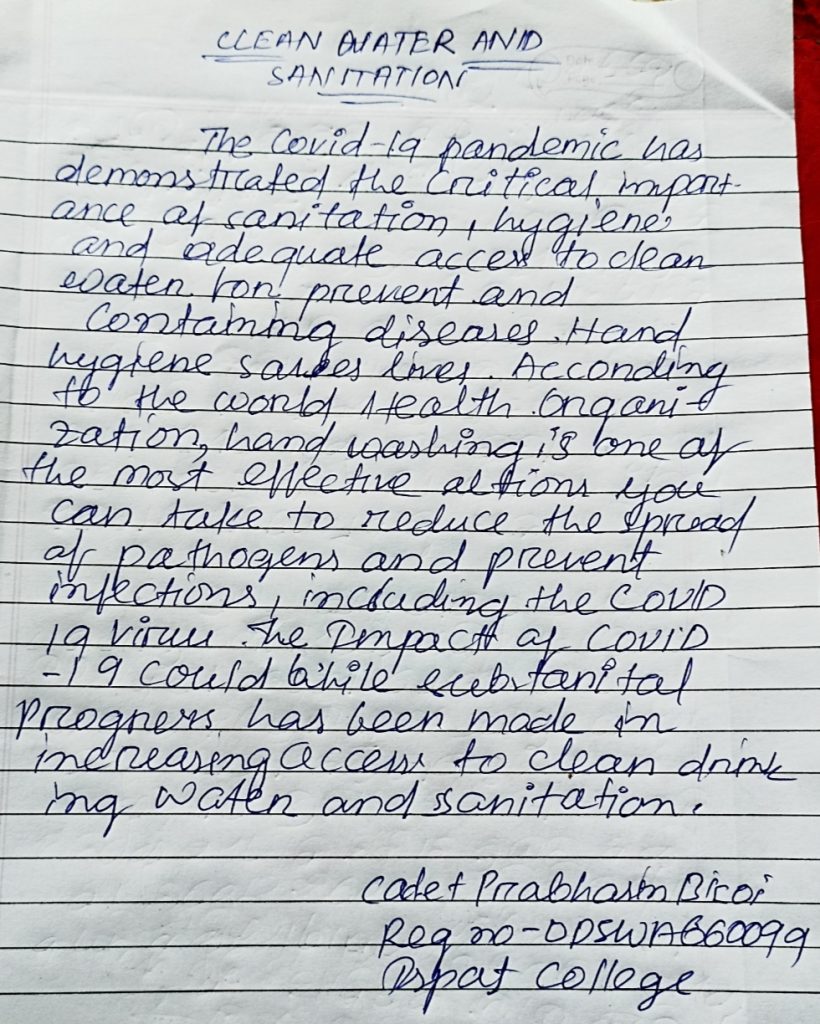 CLEAN WATER AND
SANITATION
The Covid-19 pandemic has
demonstrated the Critical import-
ance of sanitation, hygiene
and adequate access to clean
water for prevent and
Containing diseases. Hand
hygiene saves lives. According
to the world Health Organi-
zation, hand washing is one of
the most effective actions you
can take to reduce the spread
of pathogens and prevent
infections, including the COVID
19 virus. The Impact of COVID
-19 could While substanital
Progress has been made in
increasing access to clean drink
ing water and sanitation.
Cadet Biroi
Reg no-
Ispat College